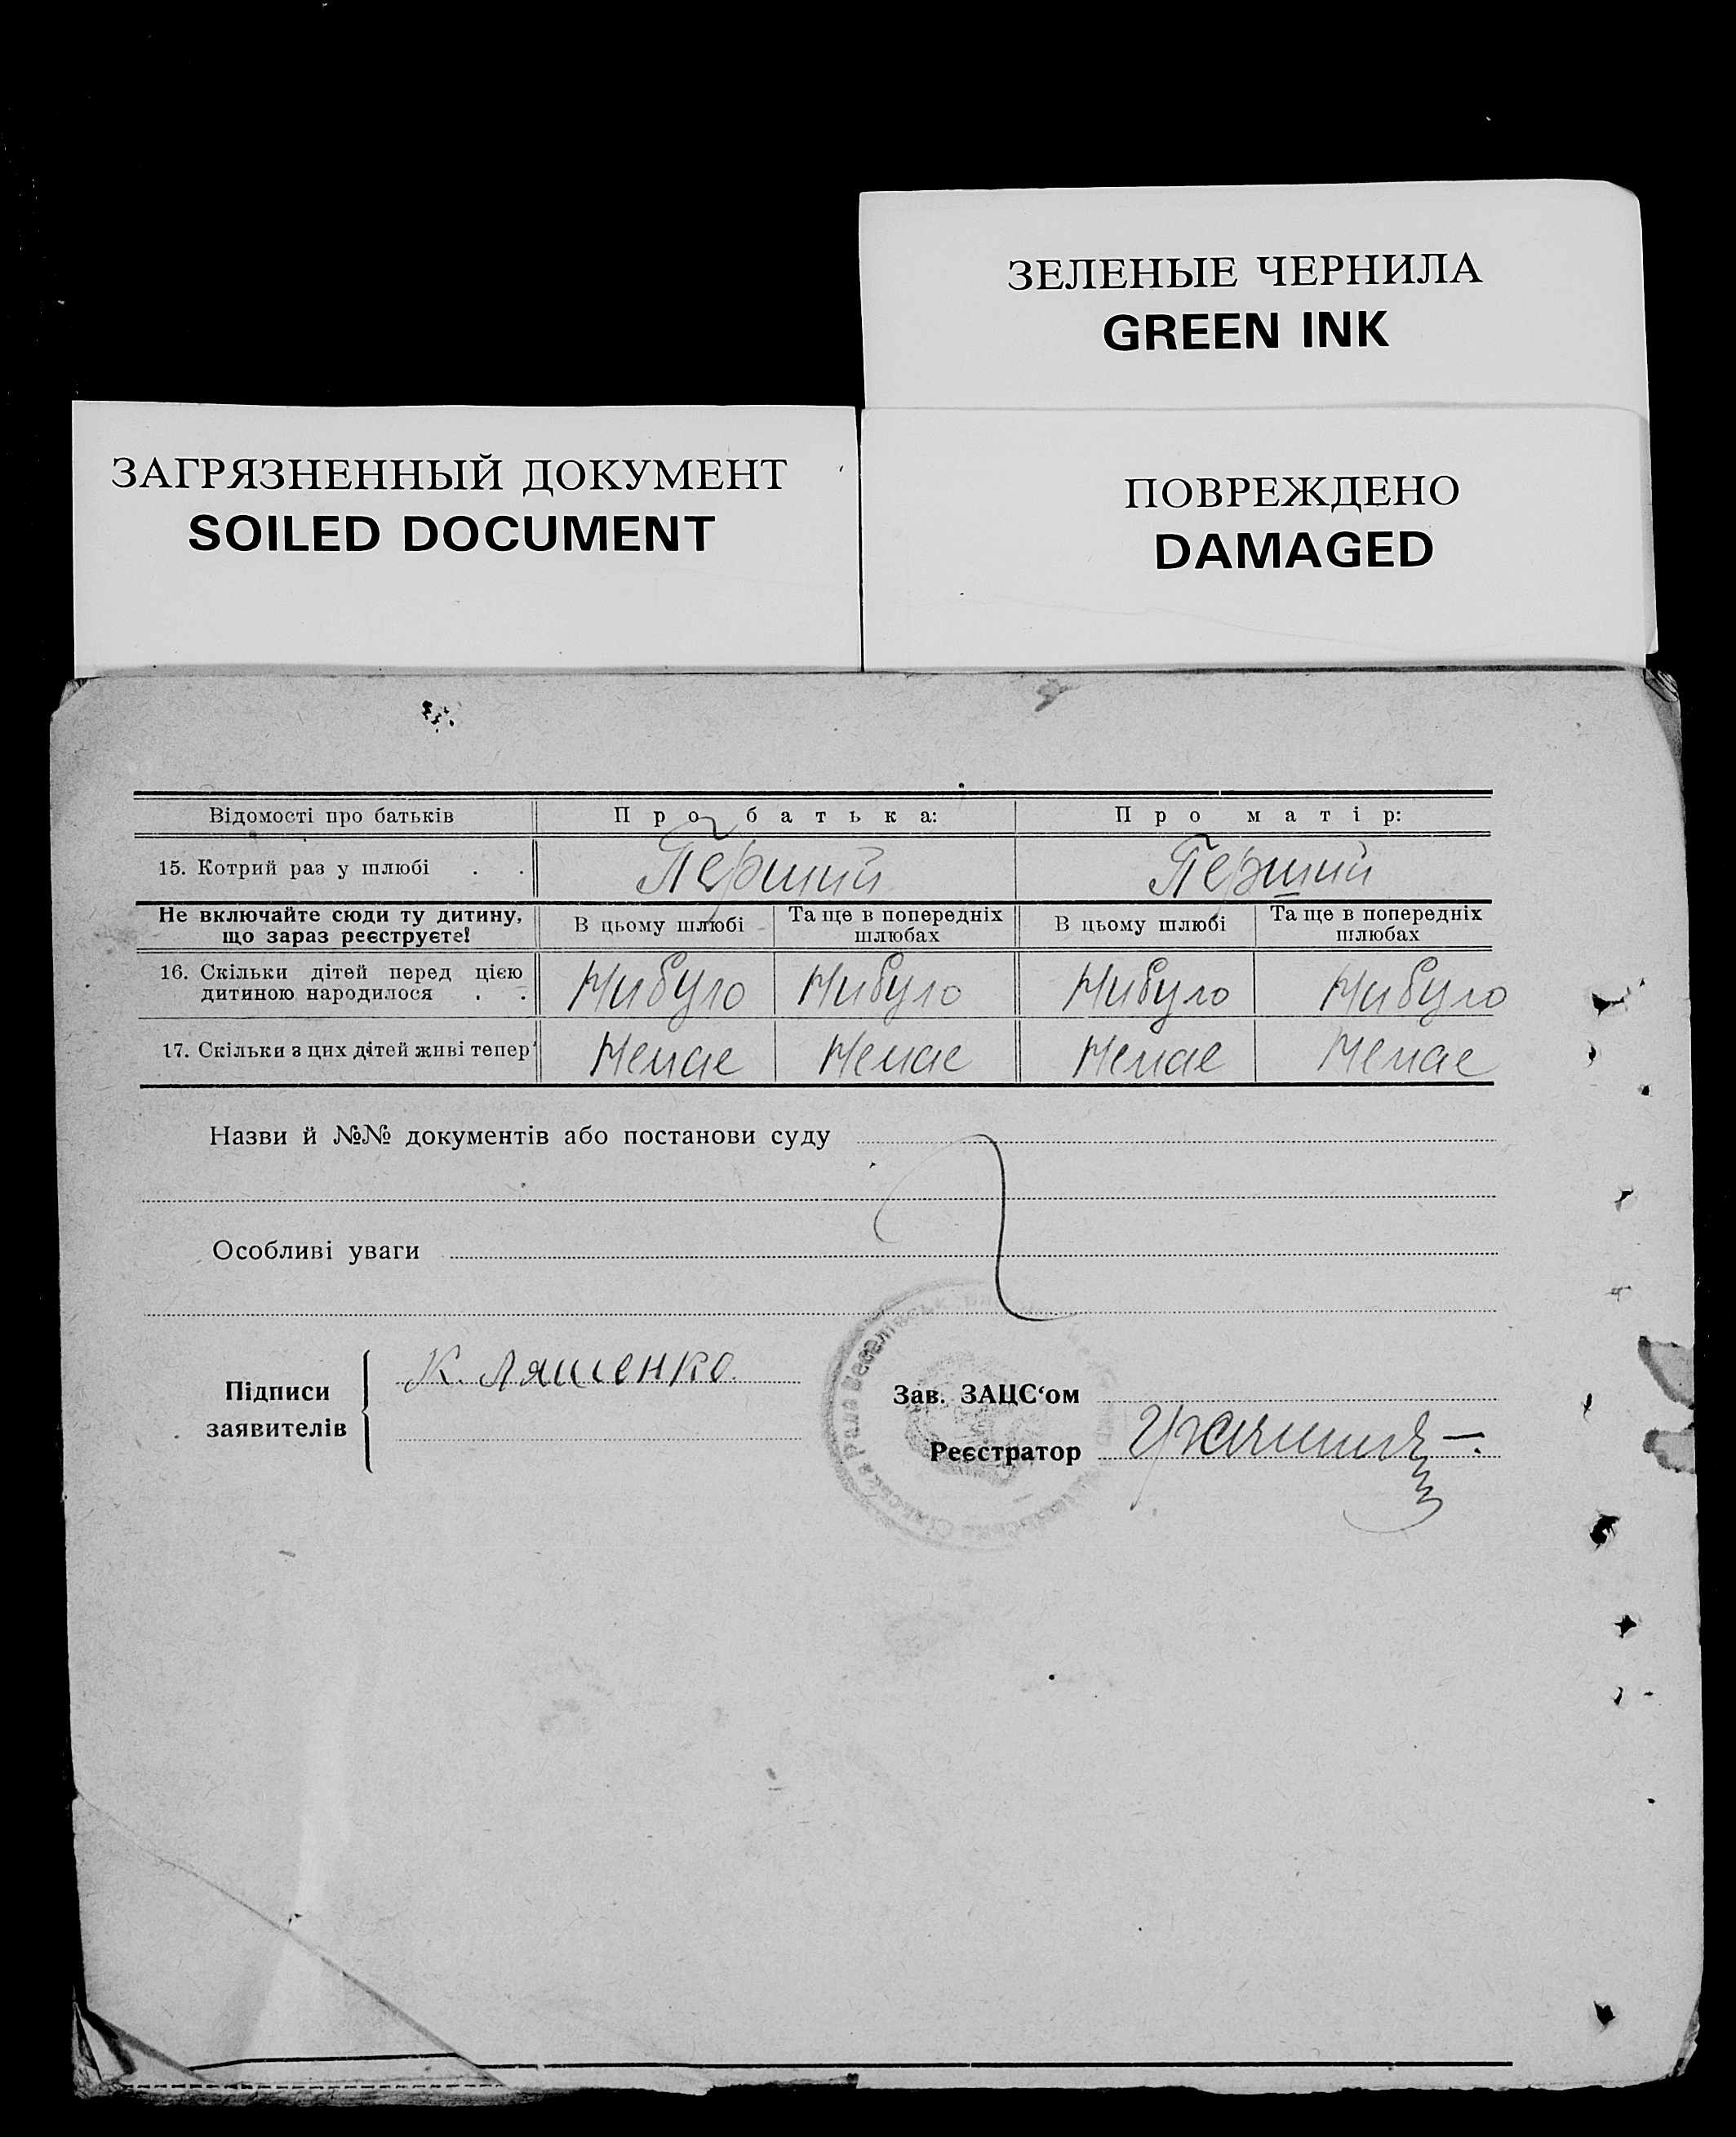 ЗЕЛЕНЫЕ ЧЕРНИЛА
GREEN INK
ЗАГРЯЗНЕННЫЙ ДОКУМЕНТ
SOILED DOCUMENT
ПОВРЕЖДЕНО
DAMAGED
Відомості про батьків Про батька: Про матір:
15. Котрий раз у шлюбі . . Перший Перший
Не включайте сюди ту дитину, що зараз реєструєте! В цьому шлюбі Та ще в попередніх шлюбах В цьому шлюбі Та ще в попередніх шлюбах
16. Скільки дітей перед цією дитиною народилося . . Нибуло Нибуло Нибуло Нибуло
17. Скільки з цих дітей живі тепер Немае Немае Немае Немае
Назви й №№ документів або постанови суду
Особливі уваги
Підписи заявителів К. Ляшенко.
Зав. ЗАЦС‘ом
Реєстратор